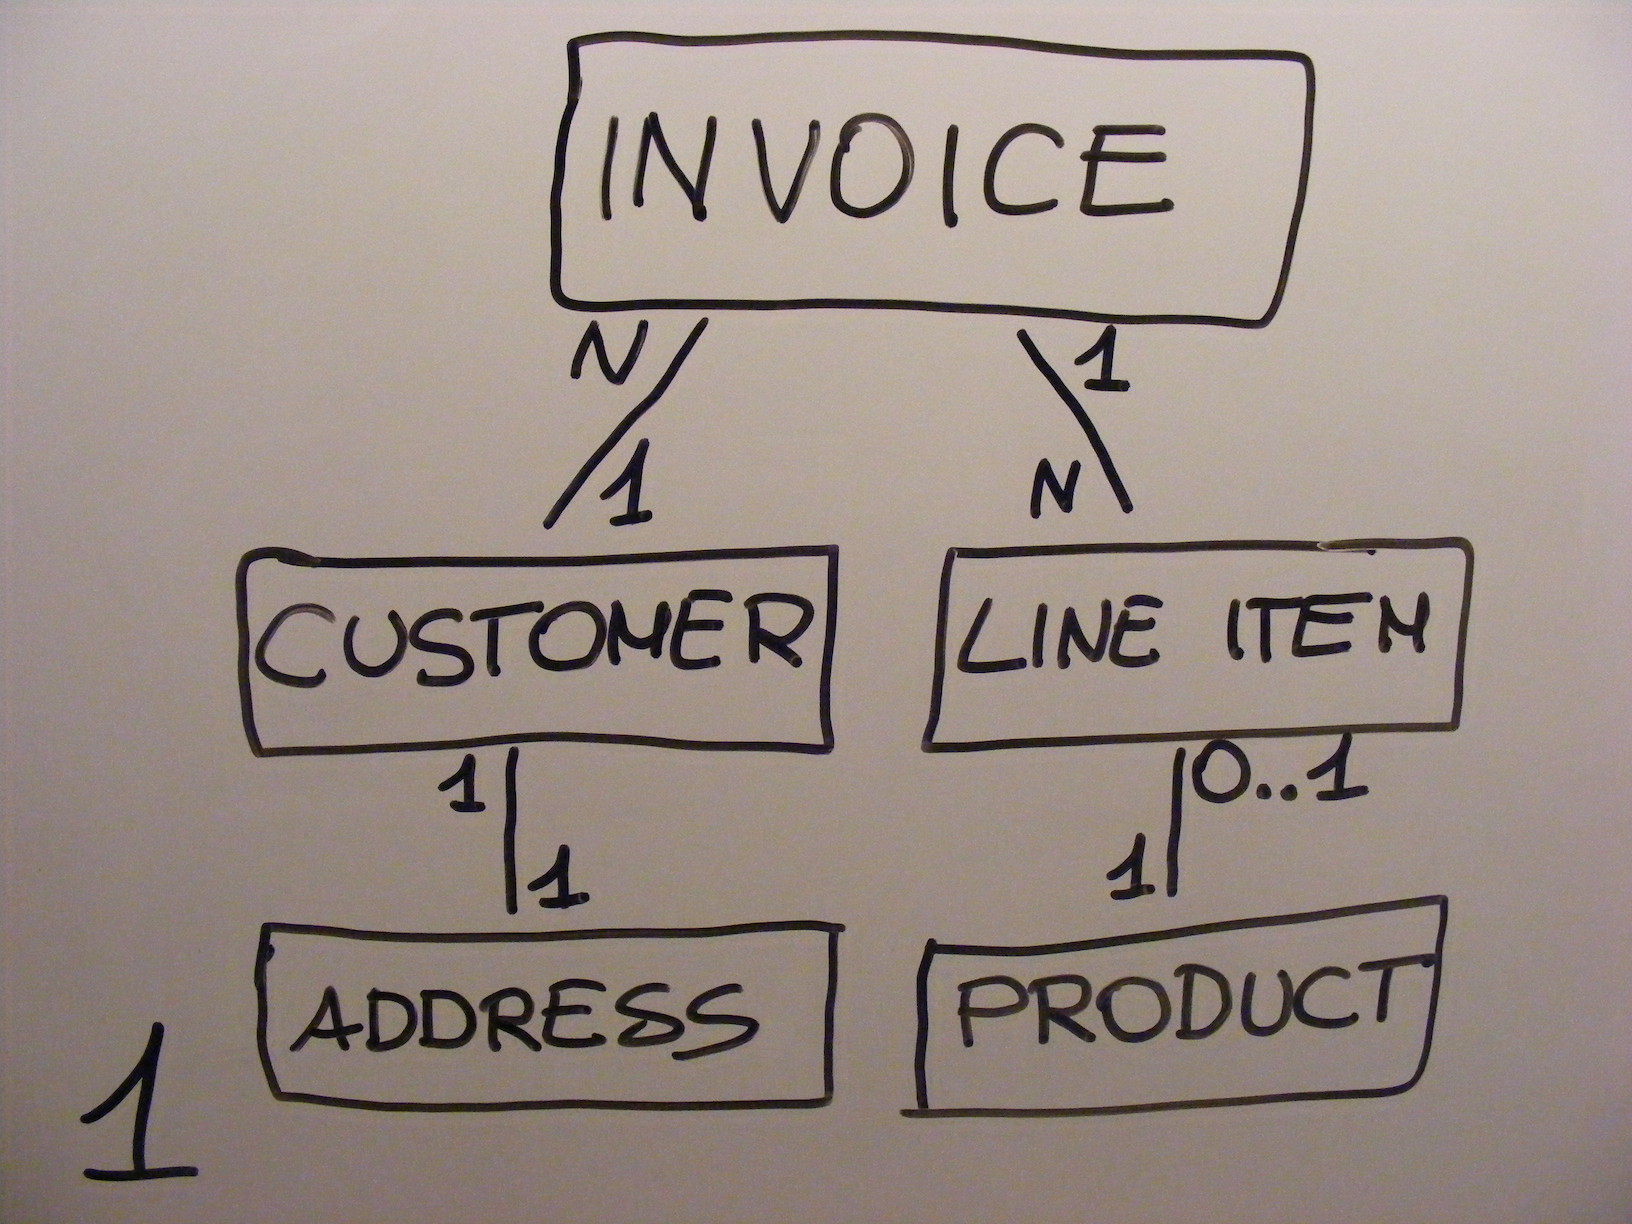 INVOICE
N 1
1 N
CUSTOMER LINE ITEM
1 0..1
1 1
ADDRESS PRODUCT
1